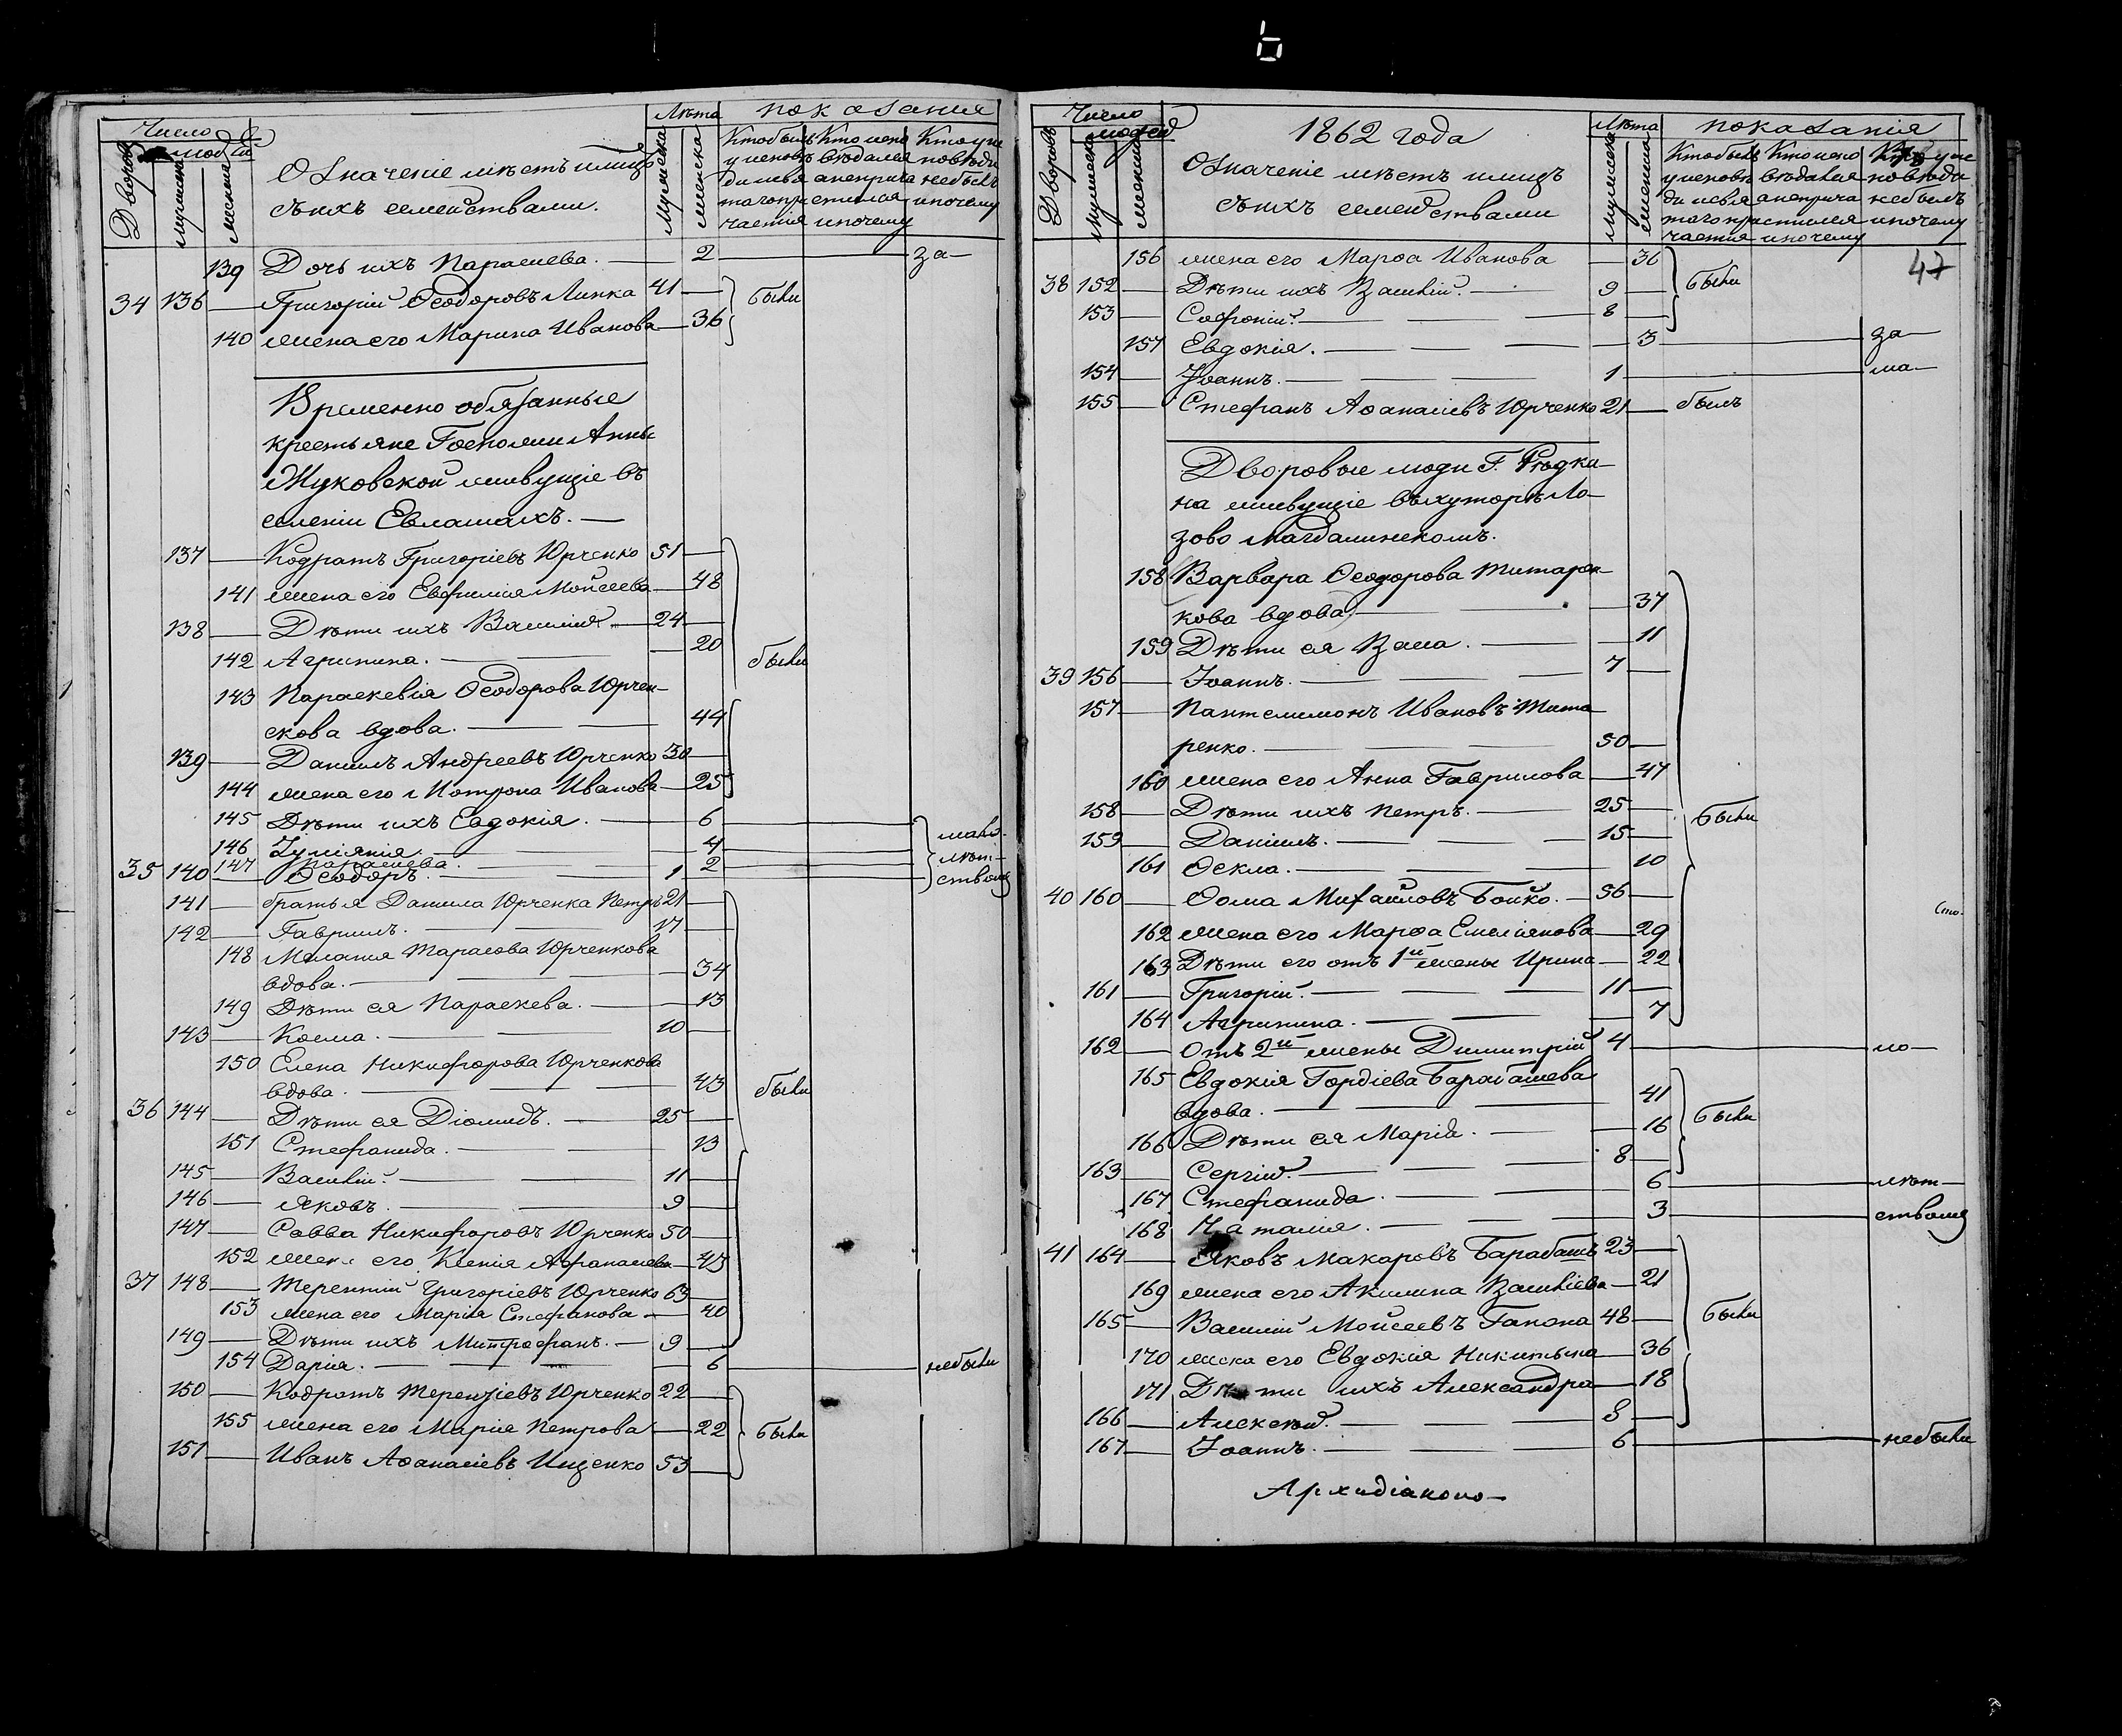 Число
людей
Дворовъ
мужеска
женска
Означеніе мѣстъ и лицъ
съ ихъ семействами.
Лѣта
Мужеска
женска
показанія
Кто былъ Кто исно Кто и не
у исповѣ вѣдался повѣди
ди и свя а не прича не былъ
таго при стился и почему
частія и почему
139 Дочь ихъ Параскева. — 2 — за—
34 136 — Григорій Ѳеодоровъ Липка 41 — были
140 жена его Марина Иванова — 36
Временно обязанные
крестьяне Госпожи Анны
Жуковской живущіе въ
селеніи Евлашахъ. —
137 — Кодратъ Григоріевъ Юрченко 51 —
141 жена его Евфимія Мойсеева — 48
138 — Дѣти ихъ Василій — 24 —
142 Агрипина. — — 20 были
143 Параскевія Ѳеодорова Юрчен-
кова вдова. — — 44
139 — Даніилъ Андреевъ Юрченко 30 —
144 жена его Мотрона Иванова — 25
145 Дѣти ихъ Евдокія. — 6 — мало-
146 Іуліянія. — 4 — лѣт-
147 Параскева. — 2 —
35 140 — Ѳеодоръ. — 1 — ствомъ
141 — братья Данила Юрченка Петръ 21 —
142 — Гавриилъ. — 17 —
148 Меланія Тарасова Юрченкова
вдова. — — 34
149 Дѣти ея Параскева. — 13
143 — Косма. — 10 —
150 Елена Никифорова Юрченкова
вдова. — — 43 были
36 144 — Дѣти ея Діомидъ. — 25 —
151 Стефанида. — — 13
145 — Василій. — — 11 —
146 — Яковъ. — — 9 —
147 — Савва Никифоровъ Юрченко 50 —
152 жена его Ксенія Афанасиева — 43
37 148 — Терентій Григоріевъ Юрченко 63 —
153 жена его Марія Стефанова — 40
149 — Дѣти ихъ Митрофанъ. — 9 —
154 Дарія. — — 6 — не были
150 — Кодратъ Терензіевъ Юрченко 22 —
155 жена его Марія Петрова — 22 были
151 — Иванъ Аѳанасіевъ Ищенко 53 —
Число
людей
Дворовъ
мужеска
женска
1862 года
Означеніе мѣстъ и лицъ
съ ихъ семействами
Лѣта
мужеска
женска
показанія
Кто былъ Кто исно Кто и не
у исповѣ вѣдался повѣди
ди и свя а не прича не былъ
таго при стился и почему
частія и почему
47
156 жена его Марѳа Иванова — 36
38 152 — Дѣти ихъ Василій. — 9 — были
153 — Софроній. — — 8 —
157 Евдокія. — — 3 — за—
154 — Іоаннъ. — — 1 — ма—
155 — Стефанъ Аѳанасіевъ Юрченко 21 — былъ
Дворовые люди Г. Рѣдки-
на живущіе въ хуторѣ Ло-
зово Магдалинскомъ.
158 Варвара Ѳеодорова Титарен-
кова вдова — — 37
159 Дѣти ея Васа. — — 11
39 156 — Іоаннъ. — — 7 —
157 — Пантелимонъ Ивановъ Тита-
ренко. — — 50 —
160 жена его Анна Гаврилова — 47
158 — Дѣти ихъ Петръ. — 25 — были
159 — Даніилъ. — — 15 —
161 Ѳекла. — — 10
40 160 — Ѳома Михаиловъ Бойко. — 56 —
Сто.
162 жена его Марѳа Емеліянова — 29
163 Дѣти его отъ 1й жены Ирина — 22
161 — Григорій. — — 11 —
164 Агрипина. — — 7
162 — отъ 2й жены Димитрій 4 — ло—
165 Евдокія Гордіева Барабашева
вдова. — — 41
166 Дѣти ея Марія. — — 16 были
163 — Сергій. — — 8 —
167 Стефанида. — — 6 — лѣт—
168 Наталія. — — 3 — ствомъ
41 164 — Яковъ Макаровъ Барабашъ 23 —
169 жена его Акилина Василіева — 21
165 — Василій Мойсеевъ Гапона 48 — были
170 жена его Евдокія Никитына — 36
171 Дѣти ихъ Александра — 18
166 — Алексѣй. — — 8 —
167 — Іоаннъ. — — 6 — не были
Архидіаконо—